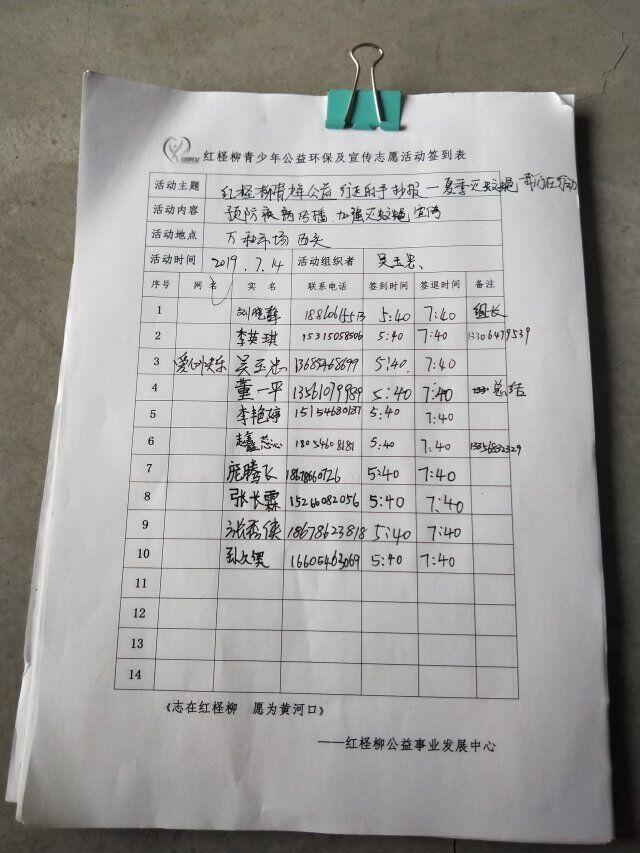 红柽柳青少年公益环保及宣传志愿活动签到表
活动主题 红柽柳青少年公益 手抄报一夏季灭蚊蝇 我们在行动
活动内容 预防疾病传播、加强灭蚊蝇宣传
活动地点 万和市场 西头
活动时间 2019.7.14 活动组织者 吴玉忠
序号 网名 实名 联系电话 签到时间 签退时间 备注
1 刘晓 5:40 7:40 组长
2 李英琪 15315058506 5:40 7:40 13306479539
3 爱心快乐 吴玉忠 13685468699 5:40 7:40
4 董一平 13561079989 5:40 7:40 总结
5 李艳婷 15154680187 5:40 7:40
6 赵鑫蕊 18054608181 5:40 7:40
7 庞腾飞 18678660726 5:40 7:40
8 张长霖 15266082056 5:40 7:40
9 张秀侠 18678623818 5:40 7:40
10 孙文 16605463069 5:40 7:40
11
12
13
14
《志在红柽柳 愿为黄河口》
——红柽柳公益事业发展中心